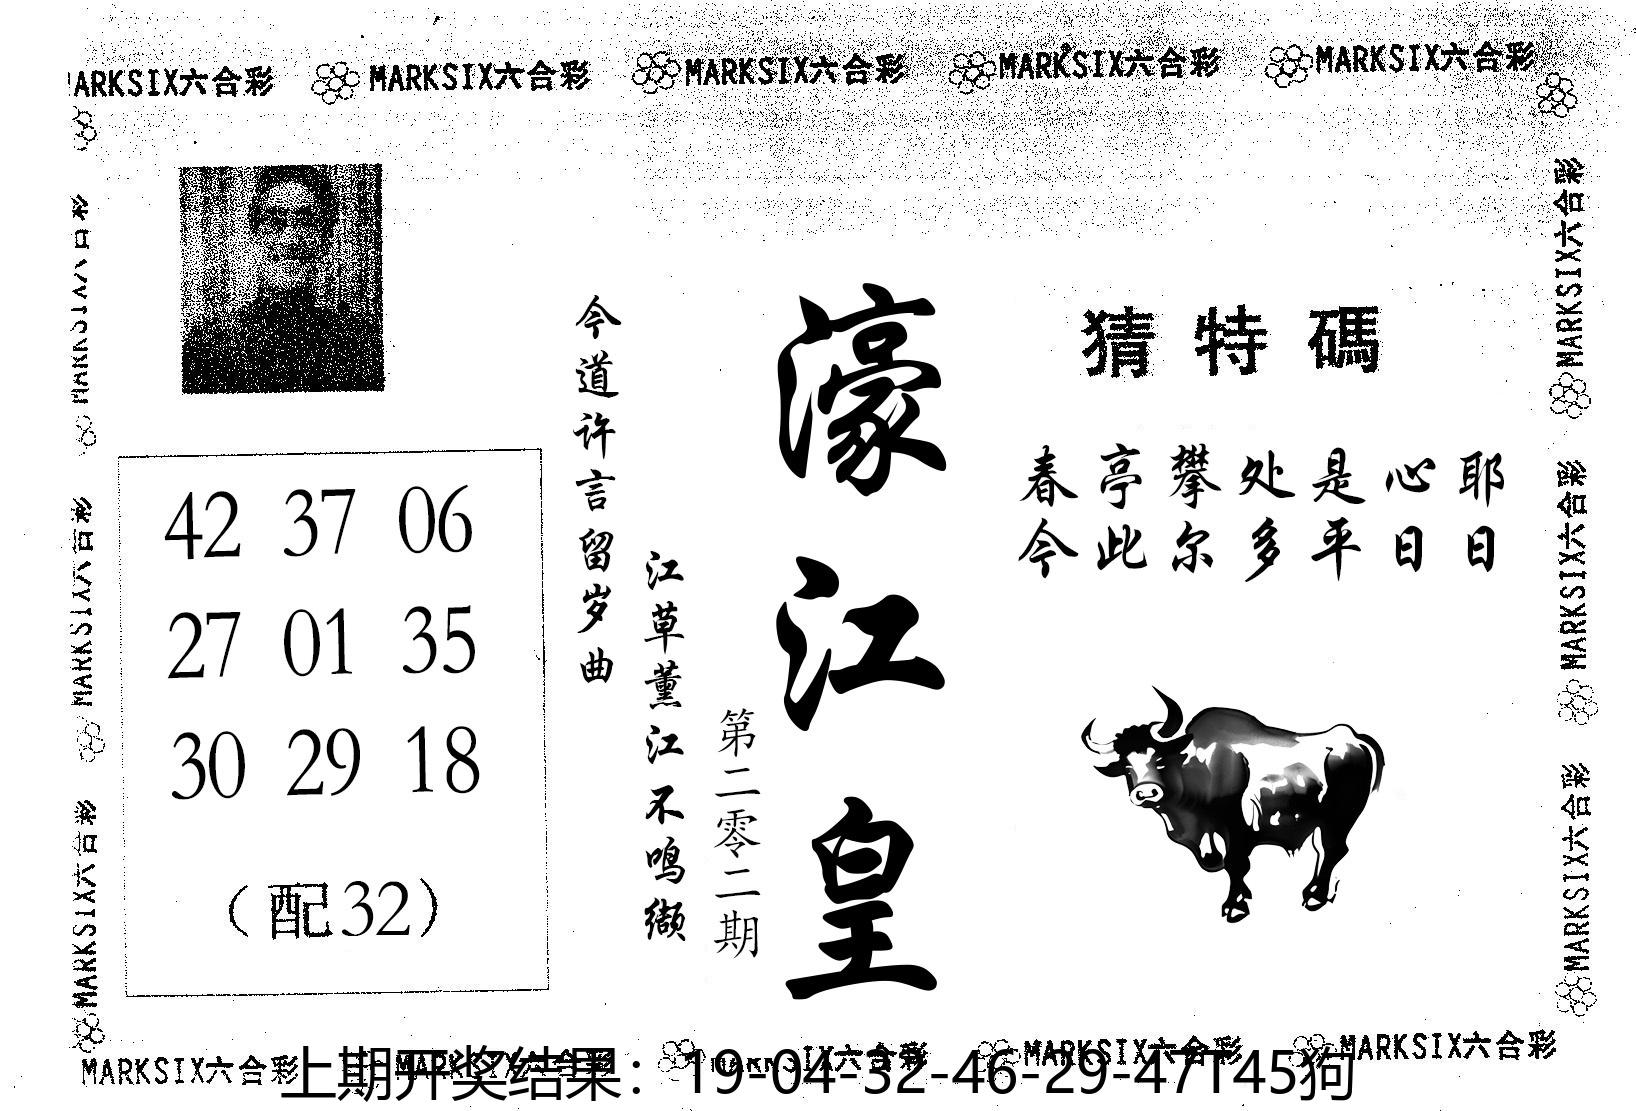 MARKSIX六合彩 MARKSIX六合彩 MARKSIX六合彩 MARKSIX六合彩 MARKSIX六合彩
MARKSIX六合彩
MARKSIX六合彩
MARKSIX六合彩
42 37 06
27 01 35
30 29 18
（配32）
今道许言留岁曲
江草薰江不鸣缬
第二零二期
濠江皇
猜特碼
春亭攀处是心耶
今此尔多平日日
MARKSIX六合彩
MARKSIX六合彩
MARKSIX六合彩
MARKSIX六合彩 MARKSIX六合彩 MARKSIX六合彩 MARKSIX六合彩 MARKSIX六合彩
上期开奖结果：19-04-32-46-29-47T45狗